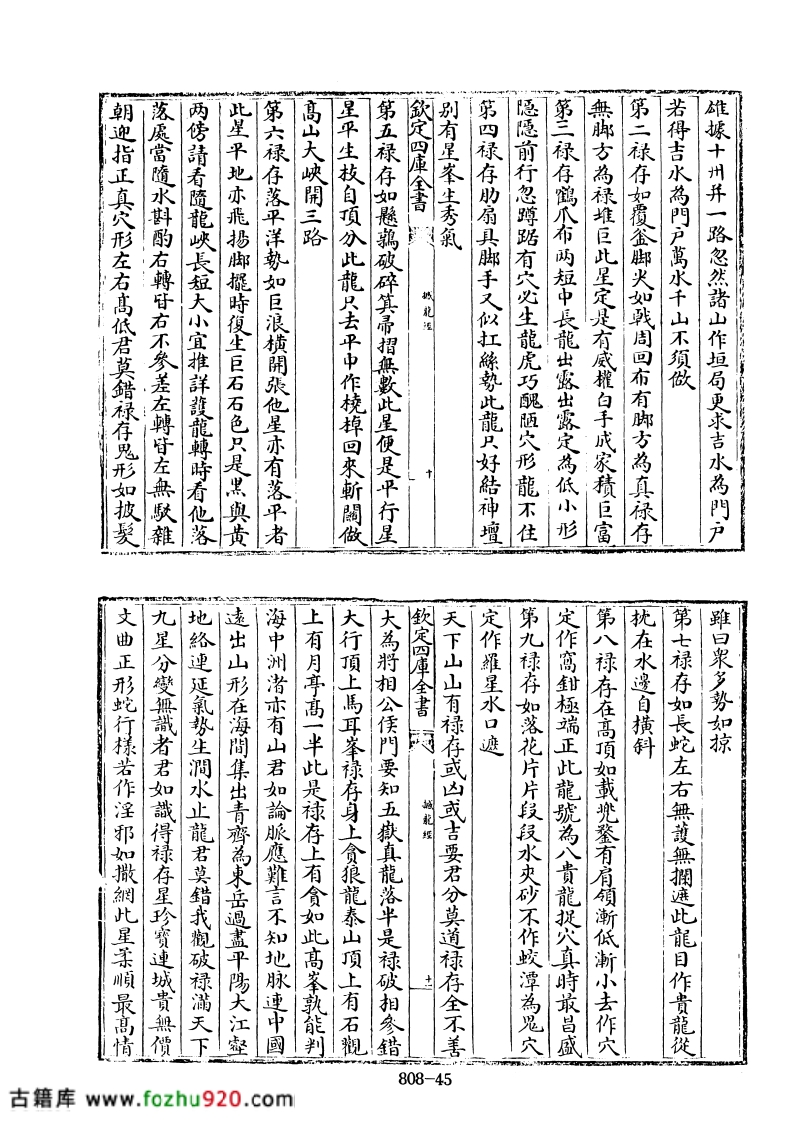 雄據十州并一路忽然諸山作垣局更求吉水為門戶
若得吉水為門戶萬水千山不須做
第二禄存如覆釡脚尖如㦸周回布有脚方為真禄存
無脚方為禄堆巨此星定是有威權白手成家積巨富
第三禄存鶴爪布兩短中長龍出露出露定為低小形
隠隠前行忽蹲踞有穴必生龍虎巧醜陋穴形龍不住
第四禄存肋扇具脚手又似扛絲勢此龍只好結神壇
别有星峯生秀氣
欽定四庫全書
撼龍經
十
第五禄存如懸鶉破碎箕帚摺無數此星便是平行星
星平生枝自頂分此龍只去平中作橈棹回來斬闗做
髙山大峽開三路
第六禄存落平洋勢如巨浪横開張他星亦有落平者
此星平地亦飛揚脚擺時復生巨石石色只是黒與黄
兩傍請看隨龍峽長短大小宜推詳䕶龍轉時看他落
落處當隨水斟酌右轉皆右不參差左轉皆左無駁雜
朝迎指正真穴形左右髙低君莫錯禄存鬼形如披髮
雖曰衆多勢如掠
第七禄存如長蛇左右無護無攔遮此龍目作貴龍從
枕在水邊自横斜
第八禄存在髙頂如載兠鍪有肩領漸低漸小去作穴
定作窩鉗極端正此龍號為八貴龍捉穴真時最昌盛
第九禄存如落花片片段段水夾砂不作蛟潭為鬼穴
定作羅星水口遮
天下山山有禄存或凶或吉要君分莫道禄存全不善
欽定四庫全書
撼龍經
十一
大為將相公侯門要知五嶽真龍落半是禄破相參錯
大行頂上馬耳峯禄存身上貪狼龍泰山頂上有石觀
上有月亭髙一半此是禄存上有貪如此髙峯孰能判
海中洲渚亦有山君如論脈應難言不知地脉連中國
遠出山形在海間集出青齊為東岳過盡平陽大江壑
地絡連延氣勢生澗水止龍君莫錯我觀破禄滿天下
九星分變無識者君如識得禄存星珍寶連城貴無價
文曲正形蛇行樣若作淫邪如撒網此星柔順最髙情
808-45
古籍库 www.fozhu920.com